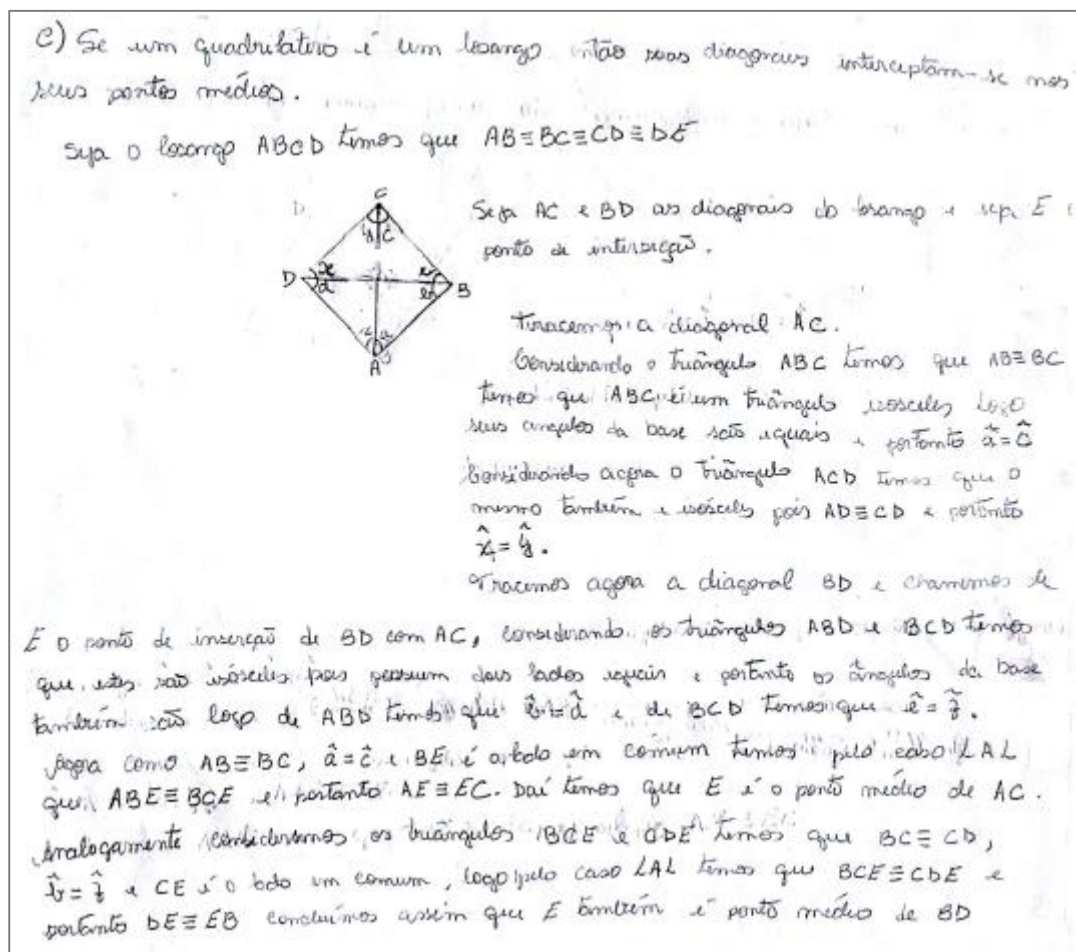 C) Se um quadrilátero é um losango então suas diagonais interceptam-se nos
seus pontos médios.
Seja o losango ABCD temos que AB≡BC≡CD≡DE
C
D
B
A
Seja AC e BD as diagonais do losango e seja E
ponto de interseção.
Tracemos a diagonal AC.
Considerando o triângulo ABC temos que AB≡BC
temos que ABC é um triângulo isósceles logo
seus angulos da base são iguais e portanto â=ĉ
Considerando agora o triângulo ACD temos que o
mesmo também e isósceles pois AD≡CD e portanto
x̂=ŷ.
Tracemos agora a diagonal BD e chamemos de
E o ponto de inserção de BD com AC, considerando os triângulos ABD e BCD temos
que estes são isósceles pois possuem dois lados iguais e portanto os ângulos da base
também são logo de ABD temos que b̂=d̂ e de BCD temos que ê=ẑ.
Agora como AB≡BC, â=ĉ e BE é o lado em comum temos pelo caso LAL
que ABE≡BCE e portanto AE≡EC. Daí temos que E é o ponto médio de AC.
Analogamente consideramos os triângulos BCE e CDE temos que BC≡CD,
e CE é o lado em comum, logo pelo caso LAL temos que BCE≡CDE e
portanto DE≡EB concluímos assim que E também é ponto médio de BD